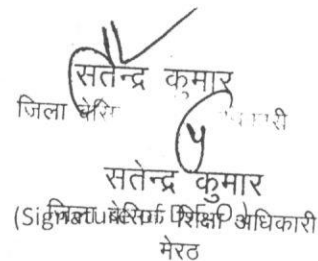 सतेन्द्र कुमार
जिला बेसि
सतेन्द्र कुमार
(Signature of जिला बेसिक शिक्षा अधिकारी
मेरठ